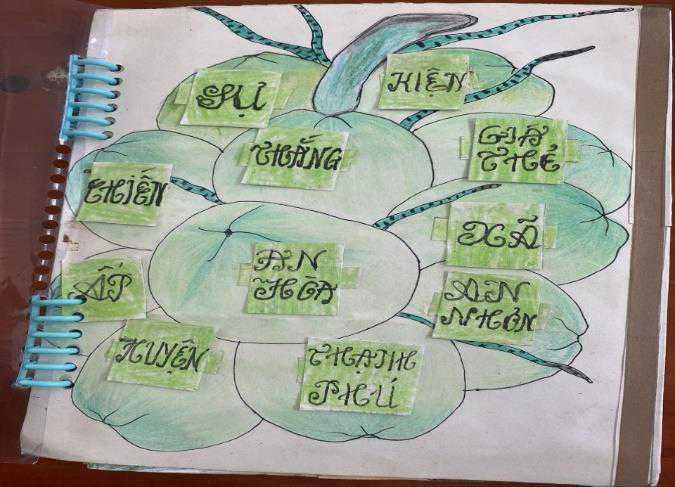 SỰ
KIỆN
THẮNG
GIÁ
THẺ
CHIẾN
XÃ
AN
HÒA
ẤP
AN
NHƠN
HUYỆN
THẠNH
PHÚ